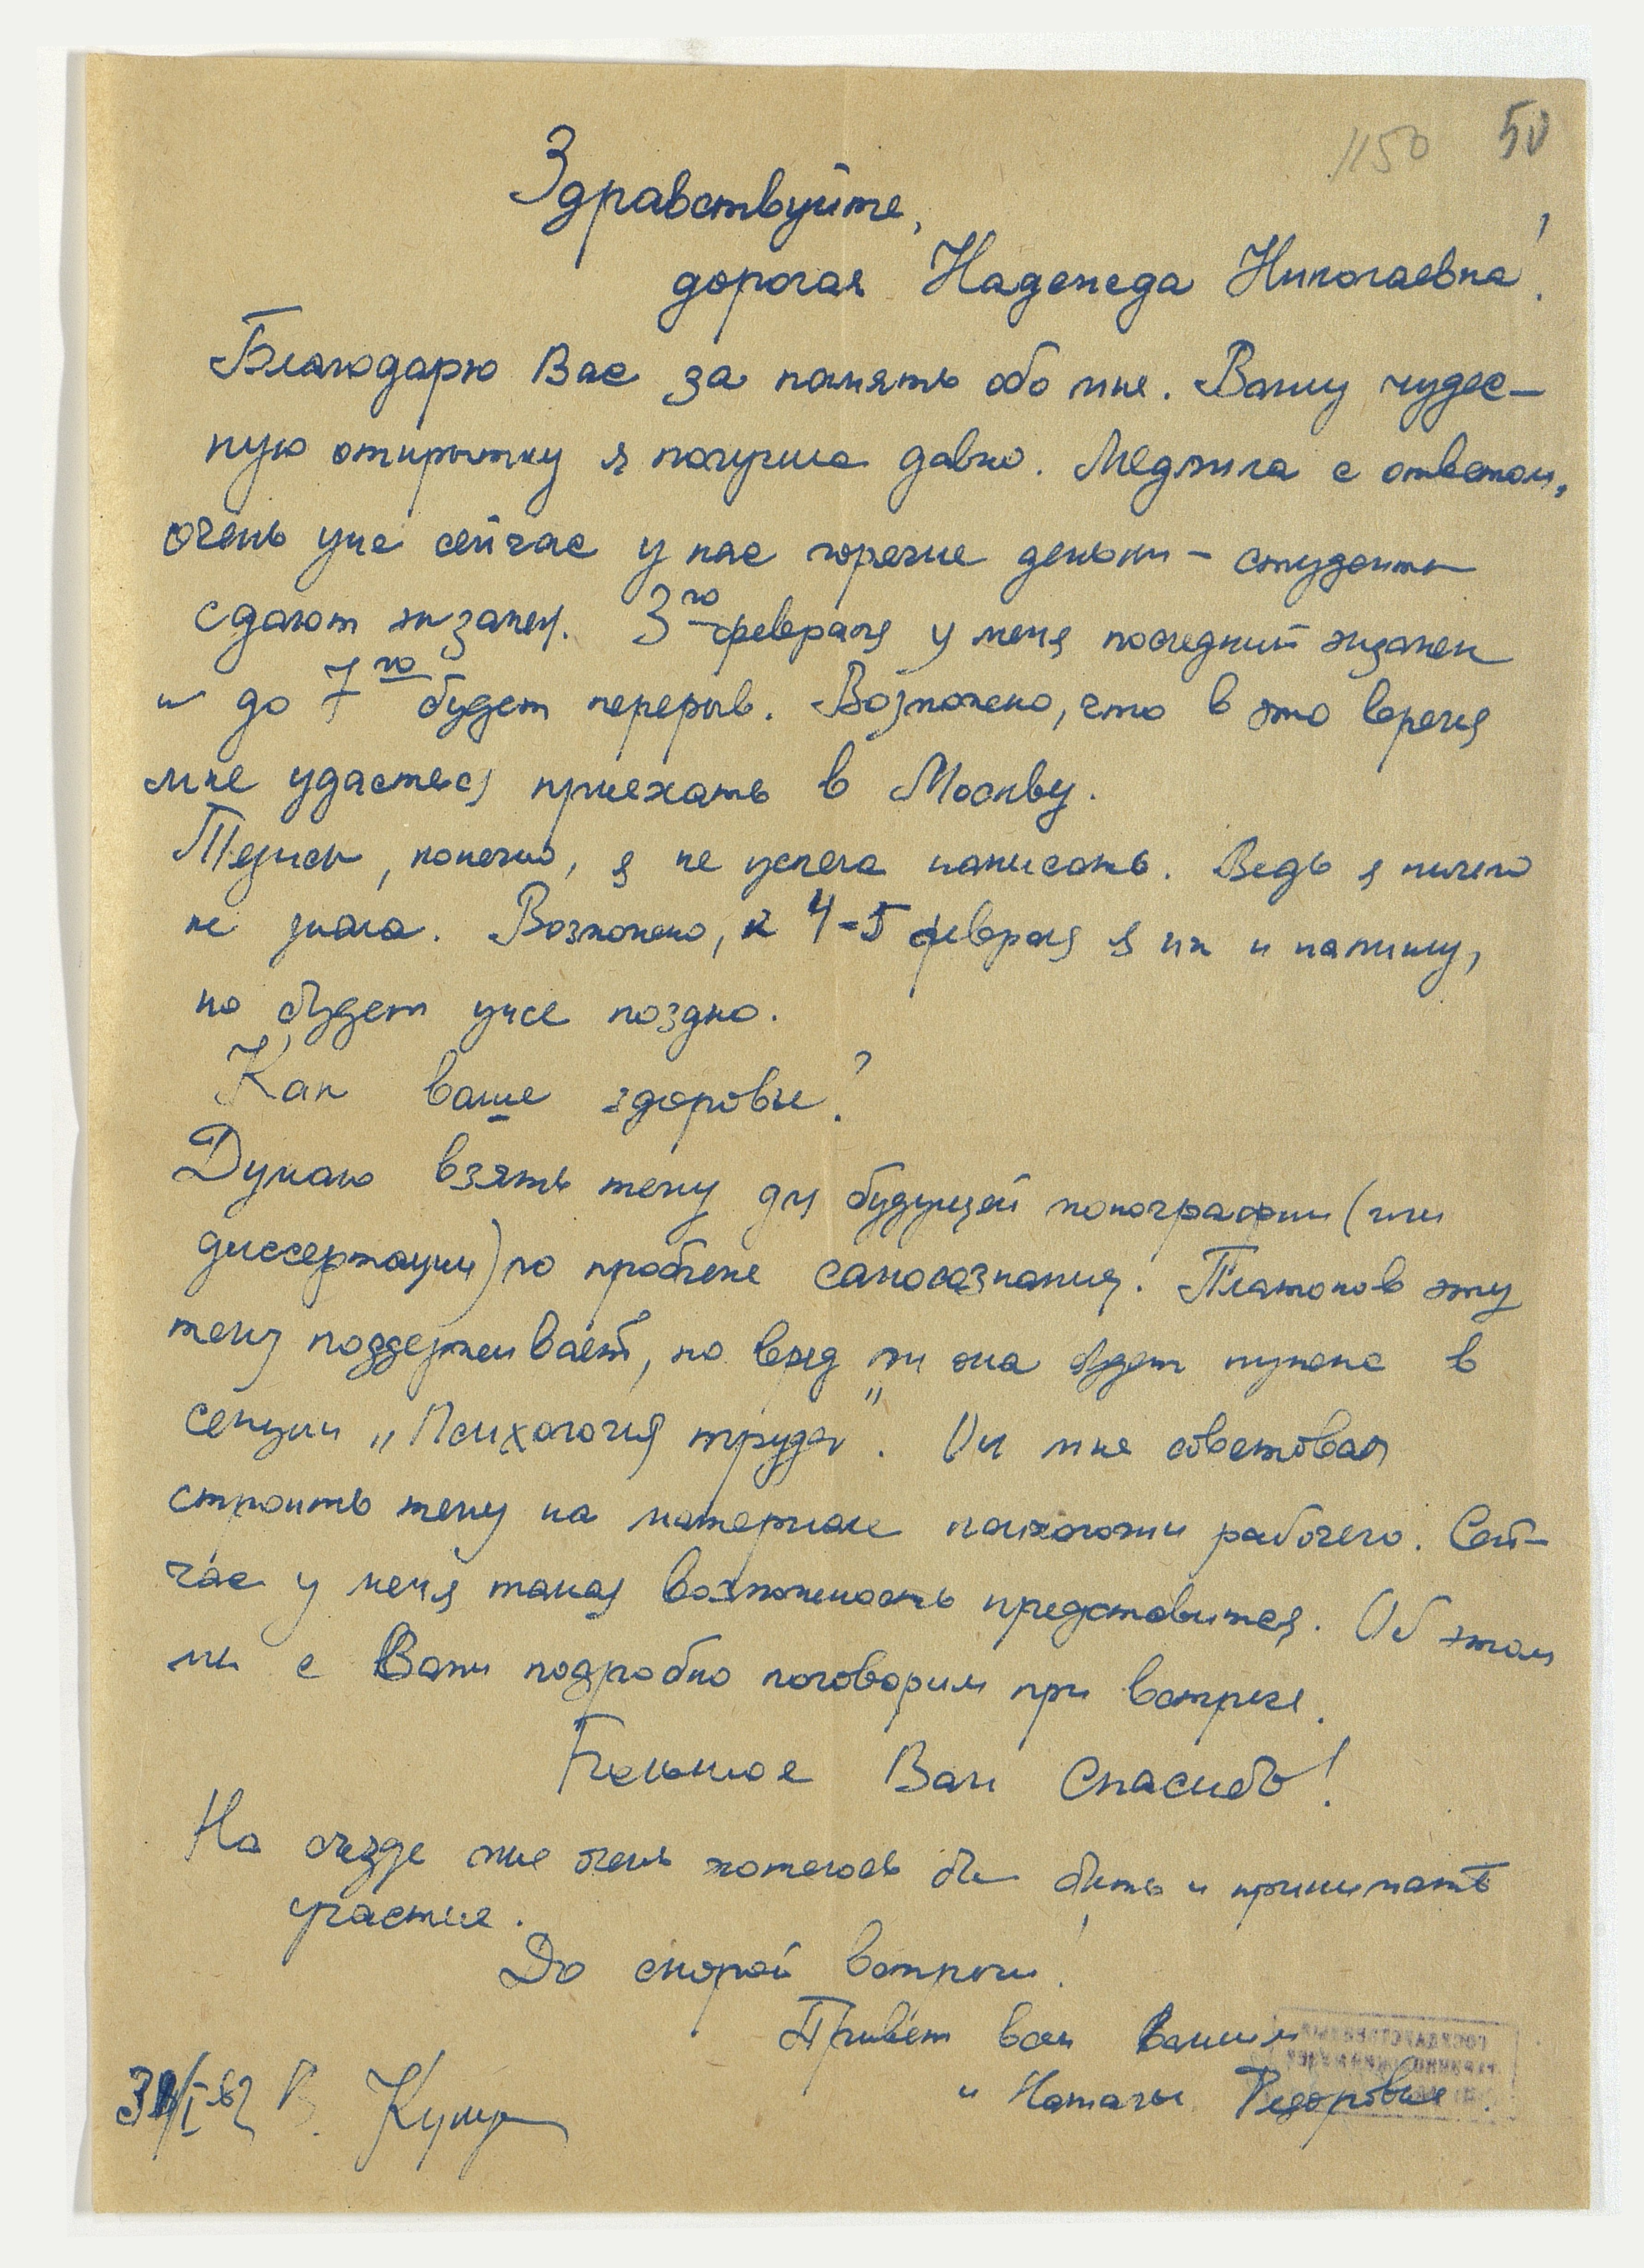 1150 50
Здравствуйте,
дорогая Надежда Николаевна!
Благодарю Вас за память обо мне. Вашу чудес-
ную открытку я получила давно. Медлила с ответом,
очень уже сейчас у нас горячие деньки - студенты
сдают экзамен. 3го февраля у меня последний экзамен
и до 7го будет перерыв. Возможно, что в это время
мне удасться приехать в Москву.
Тезисы, конечно, я не успела написать. Ведь я ничего
не знала. Возможно, к 4-5 февраля я их и напишу,
но будет уже поздно.
Как ваше здоровье?
Думаю взять тему для будущей монографии (или
диссертации) по проблеме самосознания. Платонов эту
тему поддерживает, но вряд ли она будет нужна в
секции „Психология труда". Он мне советовал
строить тему на материале психологии рабочего. Сей-
час у меня такая возможность представится. Об этом
мы с Вами подробно поговорим при встрече.
Большое Вам Спасибо!
На съезде мне очень хотелось бы быть и принимать
участие.
До скорой встречи!
Привет всем Вашим
и Наталье Федоровне.
31/I-62 В.